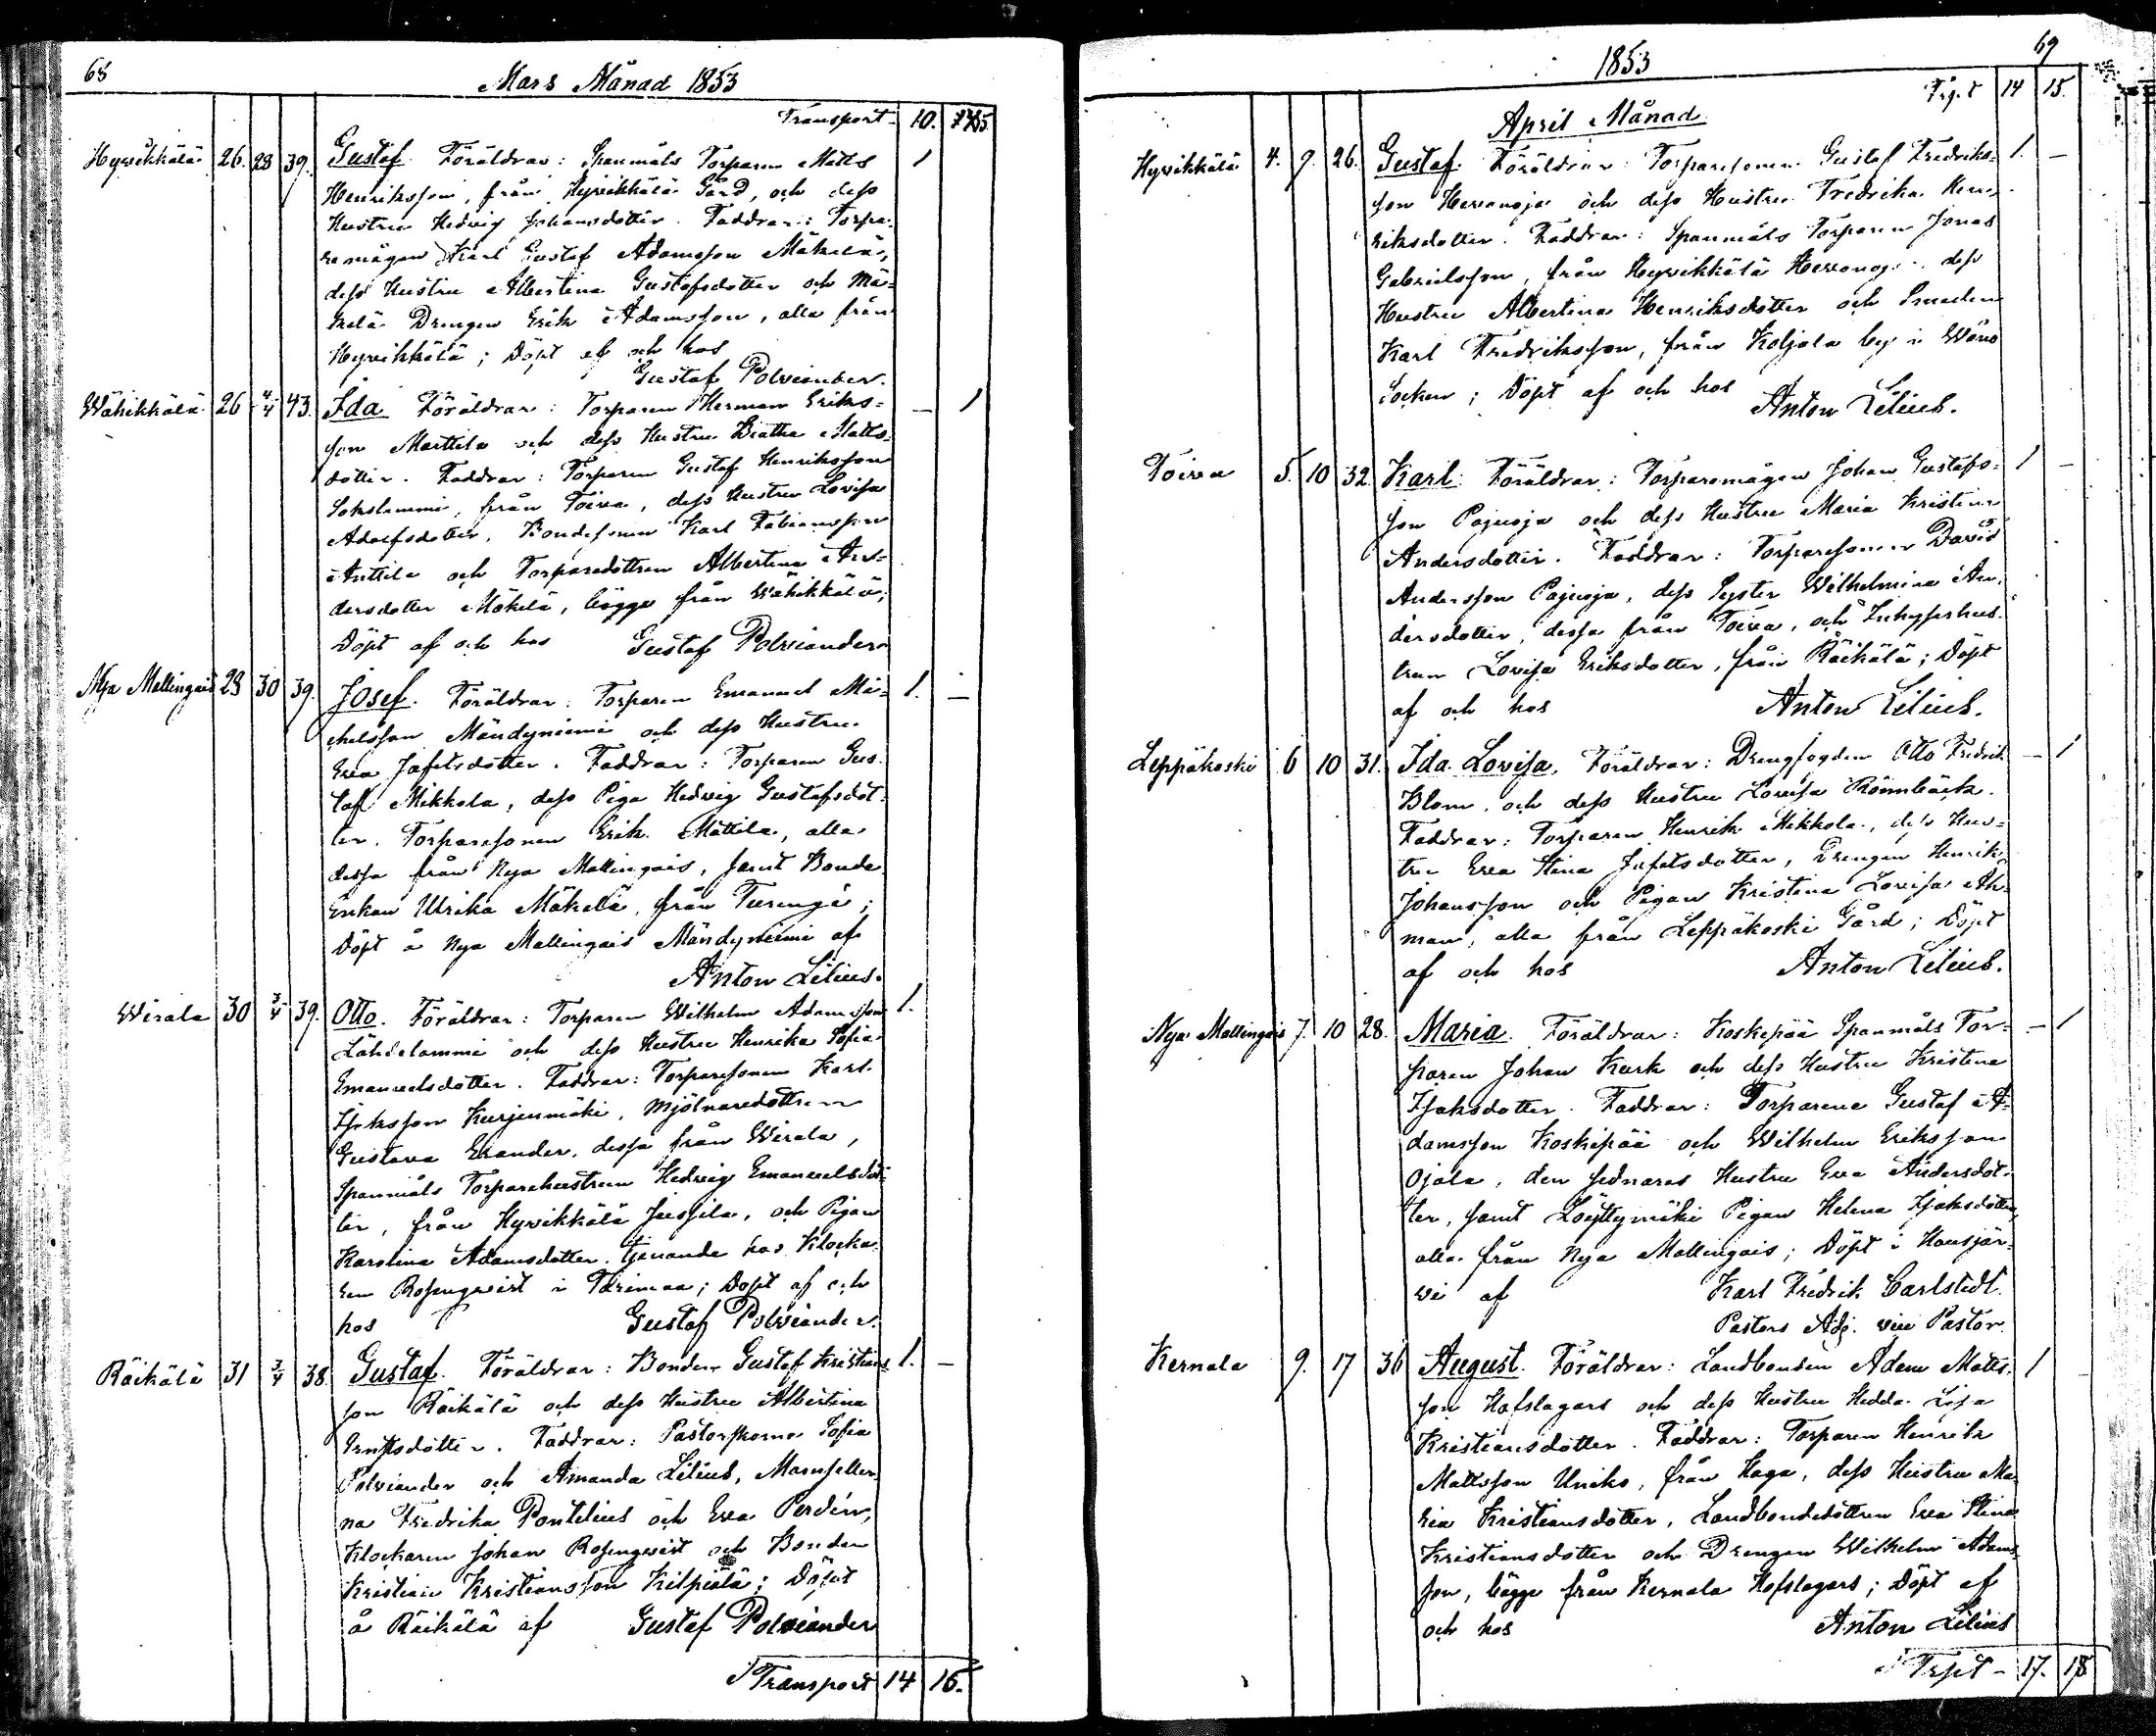 68
Mars Månad 1853
Transport 10. 15.
Hyvikkälä 26. 28 39. Gustaf. Föräldrar: Spanmåls Torparen Matts 1
Henriksson, från Hyvikkälä Gård, och dess
Hustru Hedvig Johansdotter. Faddrar: Torpa-
remågen Karl Gustaf Adamsson Mäkelä,
dess Hustru Albertina Gustafsdotter och Mä-
kelä Drengen Erik Adamsson, alla från
Hyvikkälä; Döpt af och hos
Gustaf Polviander.
Wähikkälä 26 4/4 43. Ida. Föräldrar: Torparen Herman Eriks- — 1
son Marttila och dess Hustru Beatha Matts-
dotter. Faddrar: Torparen Gustaf Henriksson
Sokslammi, från Toiva, dess Hustru Lovisa
Adolfsdotter, Bondesonen Karl Fabiansson
Anttila och Torparedottren Albertina An-
dersdotter Mäkelä, bägge från Wähikkälä;
Döpt af och hos Gustaf Polviander
Nya Mallingais 28 30 39. Josef. Föräldrar: Torparen Emanuel Mi- 1. —
chelsson Mändyniemi och dess Hustru
Eva Jafetsdotter. Faddrar: Torparen Gus-
taf Mikkola, dess Piga Hedvig Gustafsdot-
ter, Torparesonen Erik Mattila, alla
dessa från Nya Mallingais, samt Bonde
Enkan Ulrika Mäkelä, från Turengi;
Döpt å Nya Mallingais Mändyniemi af
Anton Lilius.
Wirala 30 3/4 39. Otto. Föräldrar: Torparen Wilhelm Adamsson 1.
Lähdelammi och dess Hustru Henrika Sofia
Emanuelsdotter. Faddrar: Torparesonen Karl
Isaksson Kurjenmäki, Mjölnaredottren
Gustava Elander, dessa från Wirala,
Spanmåls Torparehustrun Hedvig Emanuelsdot-
ter, från Hyvikkälä Jussila, och Pigan
Karolina Adamsdotter, tjenande hos Klocka-
ren Rosengvist i Tarimaa; Döpt af och
hos Gustaf Polviander.
Räikälä 31 3/4 38. Gustaf. Föräldrar: Bonden Gustaf Kristians- 1. —
son Räikälä och dess Hustru Albertina
Ernstsdotter. Faddrar: Pastorskorna Sofia
Polviander och Amanda Lilius, Mamseller-
na Fredrika Pontelius och Eva Perdén,
Klockaren Johan Rosengvist och Bonden
Kristian Kristiansson Kilpiälä; Döpt
å Räikälä af Gustaf Polviander
Transport 14 16.
69
1853
Trp.t 14 15.
April Månad
Hyvikkälä 4. 9. 26. Gustaf. Föräldrar: Torparesonen Gustaf Fredriks- 1. —
son Hevonoja och dess Hustru Fredrika Hen-
riksdotter. Faddrar: Spanmåls Torparen Jonas
Gabrielsson, från Hyvikkälä Hevonoja, dess
Hustru Albertina Henriksdotter och Smeden
Karl Fredriksson, från Koljala by i Wånå
Socken; Döpt af och hos
Anton Lilius.
Toiva 5. 10 32. Karl. Föräldrar: Torparemågen Johan Gustafs- 1 —
son Pajuoja och dess Hustru Maria Kristina
Andersdotter. Faddrar: Torparesonen David
Andersson Pajuoja, dess Syster Wilhelmina An-
dersdotter, dessa från Toiva, och Inhyseshus-
trun Lovisa Eriksdotter, från Räikälä; Döpt
af och hos Anton Lilius.
Leppäkoski 6 10 31. Ida Lovisa. Föräldrar: Drengfogden Otto Fredrik — 1
Blom och dess Hustru Lovisa Rönnbäck.
Faddrar: Torparen Henrik Mikkola, dess Hus-
tru Eva Stina Jafetsdotter, Drengen Henrik
Johansson och Pigan Kristina Lovisa Ah-
man, alla från Leppäkoski Gård; Döpt
af och hos Anton Lilius.
Nya Mallingais 7. 10 28. Maria. Föräldrar: Koskipää Spanmåls Tor- — 1
paren Johan Kurk och dess Hustru Kristina
Isaksdotter. Faddrar: Torparene Gustaf A-
damsson Koskipää och Wilhelm Eriksson
Ojala, den sednares Hustru Eva Andersdot-
ter, samt Löyttymäki Pigan Helena Isaksdotter,
alla från Nya Mallingais; Döpt i Hausjär-
vi af Karl Fredrik Carlstedt.
Pastors Adj. vice Pastor.
Kernala 9. 17 36 August. Föräldrar: Landbonden Adam Matts- 1 —
son Hofslagars och dess Hustru Hedda Lisa
Kristiansdotter. Faddrar: Torparen Henrik
Mattsson Uniks, från Haga, dess Hustru Ma-
ria Kristiansdotter, Landbondedottren Eva Stina
Kristiansdotter och Drengen Wilhelm Adams-
son, bägge från Kernala Hofslagars; Döpt af
och hos Anton Lilius
Trpt - 17. 18